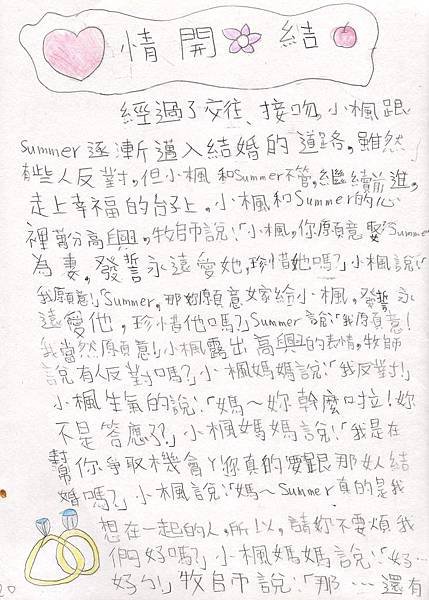 情開結
經過了交往、接吻,小楓跟
Summer逐漸邁入結婚的道路,雖然
有些人反對,但小楓和Summer不管,繼續前進,
走上幸福的台子上,小楓和Summer的心
裡萬分高興,牧師說:「小楓,你願意娶Summer
為妻,發誓永遠愛她,珍惜她嗎?」小楓說:「
我願意!」「Summer,那妳願意嫁給小楓,發誓永
遠愛他,珍惜他嗎?」Summer說:「我願意!
我當然願意!」小楓露出高興的表情,牧師
說有人反對嗎?」小楓媽媽說:「我反對!」
小楓生氣的說:「媽~妳幹麼啦!妳
不是答應了?」小楓媽媽說:「我是在
幫你爭取機會ㄚ你真的要跟那女人結
婚嗎?」小楓說:「媽~Summer真的是我
想在一起的人,所以,請妳不要煩我
們好嗎?」小楓媽媽說:「好…
好ㄅ」牧師說:「那…還有
20